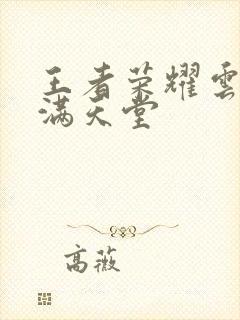 王者荣耀雲
满天堂
高薇